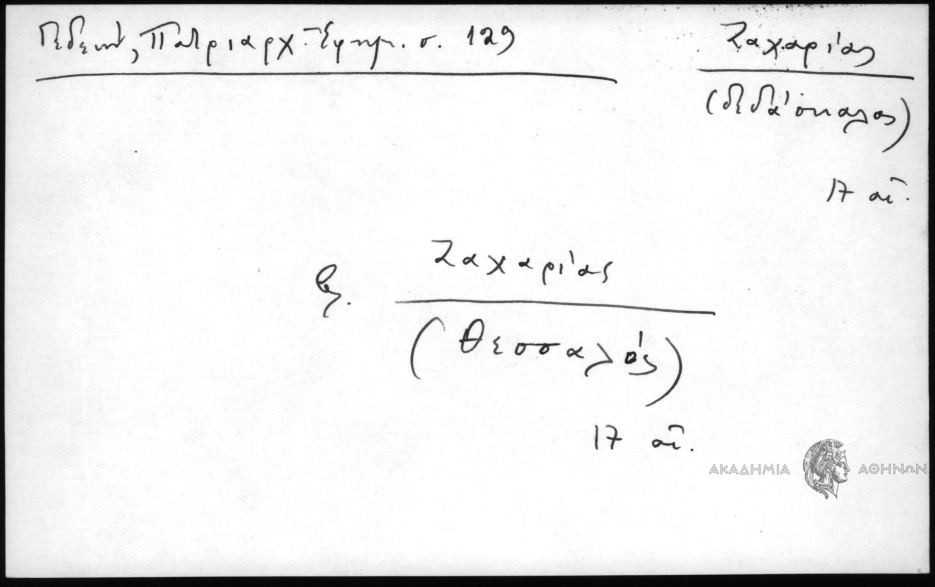 Γεδεών, Πατριαρχ. Ἐφημ. σ. 129
Ζαχαρίας
(διδάσκαλος)
17 αἰ.
βλ. Ζαχαρίας
(Θεσσαλός)
17 αἰ.
ΑΚΑΔΗΜΙΑ ΑΘΗΝΩΝ